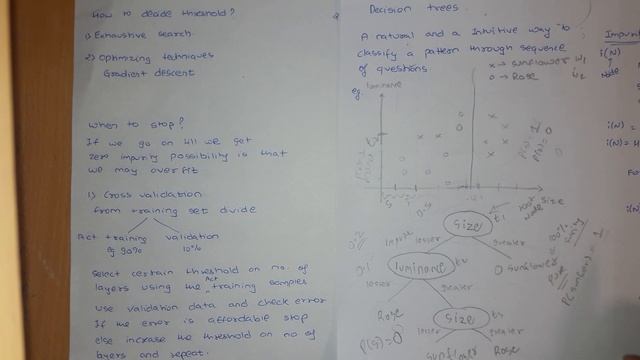 How to decide threshold?
1) Exhaustive search.
2) Optimizing techniques
Gradient descent
When to stop?
If we go on till we get
zero impurity possibility is that
we may over fit
1) Cross validation
From training set divide
Act training validation
90% 10%
Select certain threshold on no. of
layers using the Act training samples
use validation data and check error
If the error is affordable stop
else increase the threshold on no of
layers and repeat.
Decision trees.
A natural and a Intuitive way to
classify a pattern through sequence
of questions.
x → sunflower w1
o → Rose w2
eg.
luminance
Size
root
node
Size
t1
impure lesser greater
luminance
0 sunflower
100%
purity
pure
lesser greater
Rose
Size
P(S)=0
lesser greater
sunflower Rose
Impuri
i(N)
Node
i(N) =
i(N) =
For